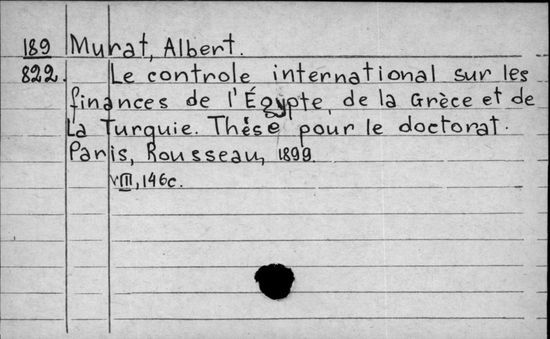 189 Murat, Albert.
822. Le controle international sur les
finances de l'Égypte, de la Grèce et de
La Turquie. Thèse pour le doctorat.
Paris, Rousseau, 1899.
VIII, 146c.